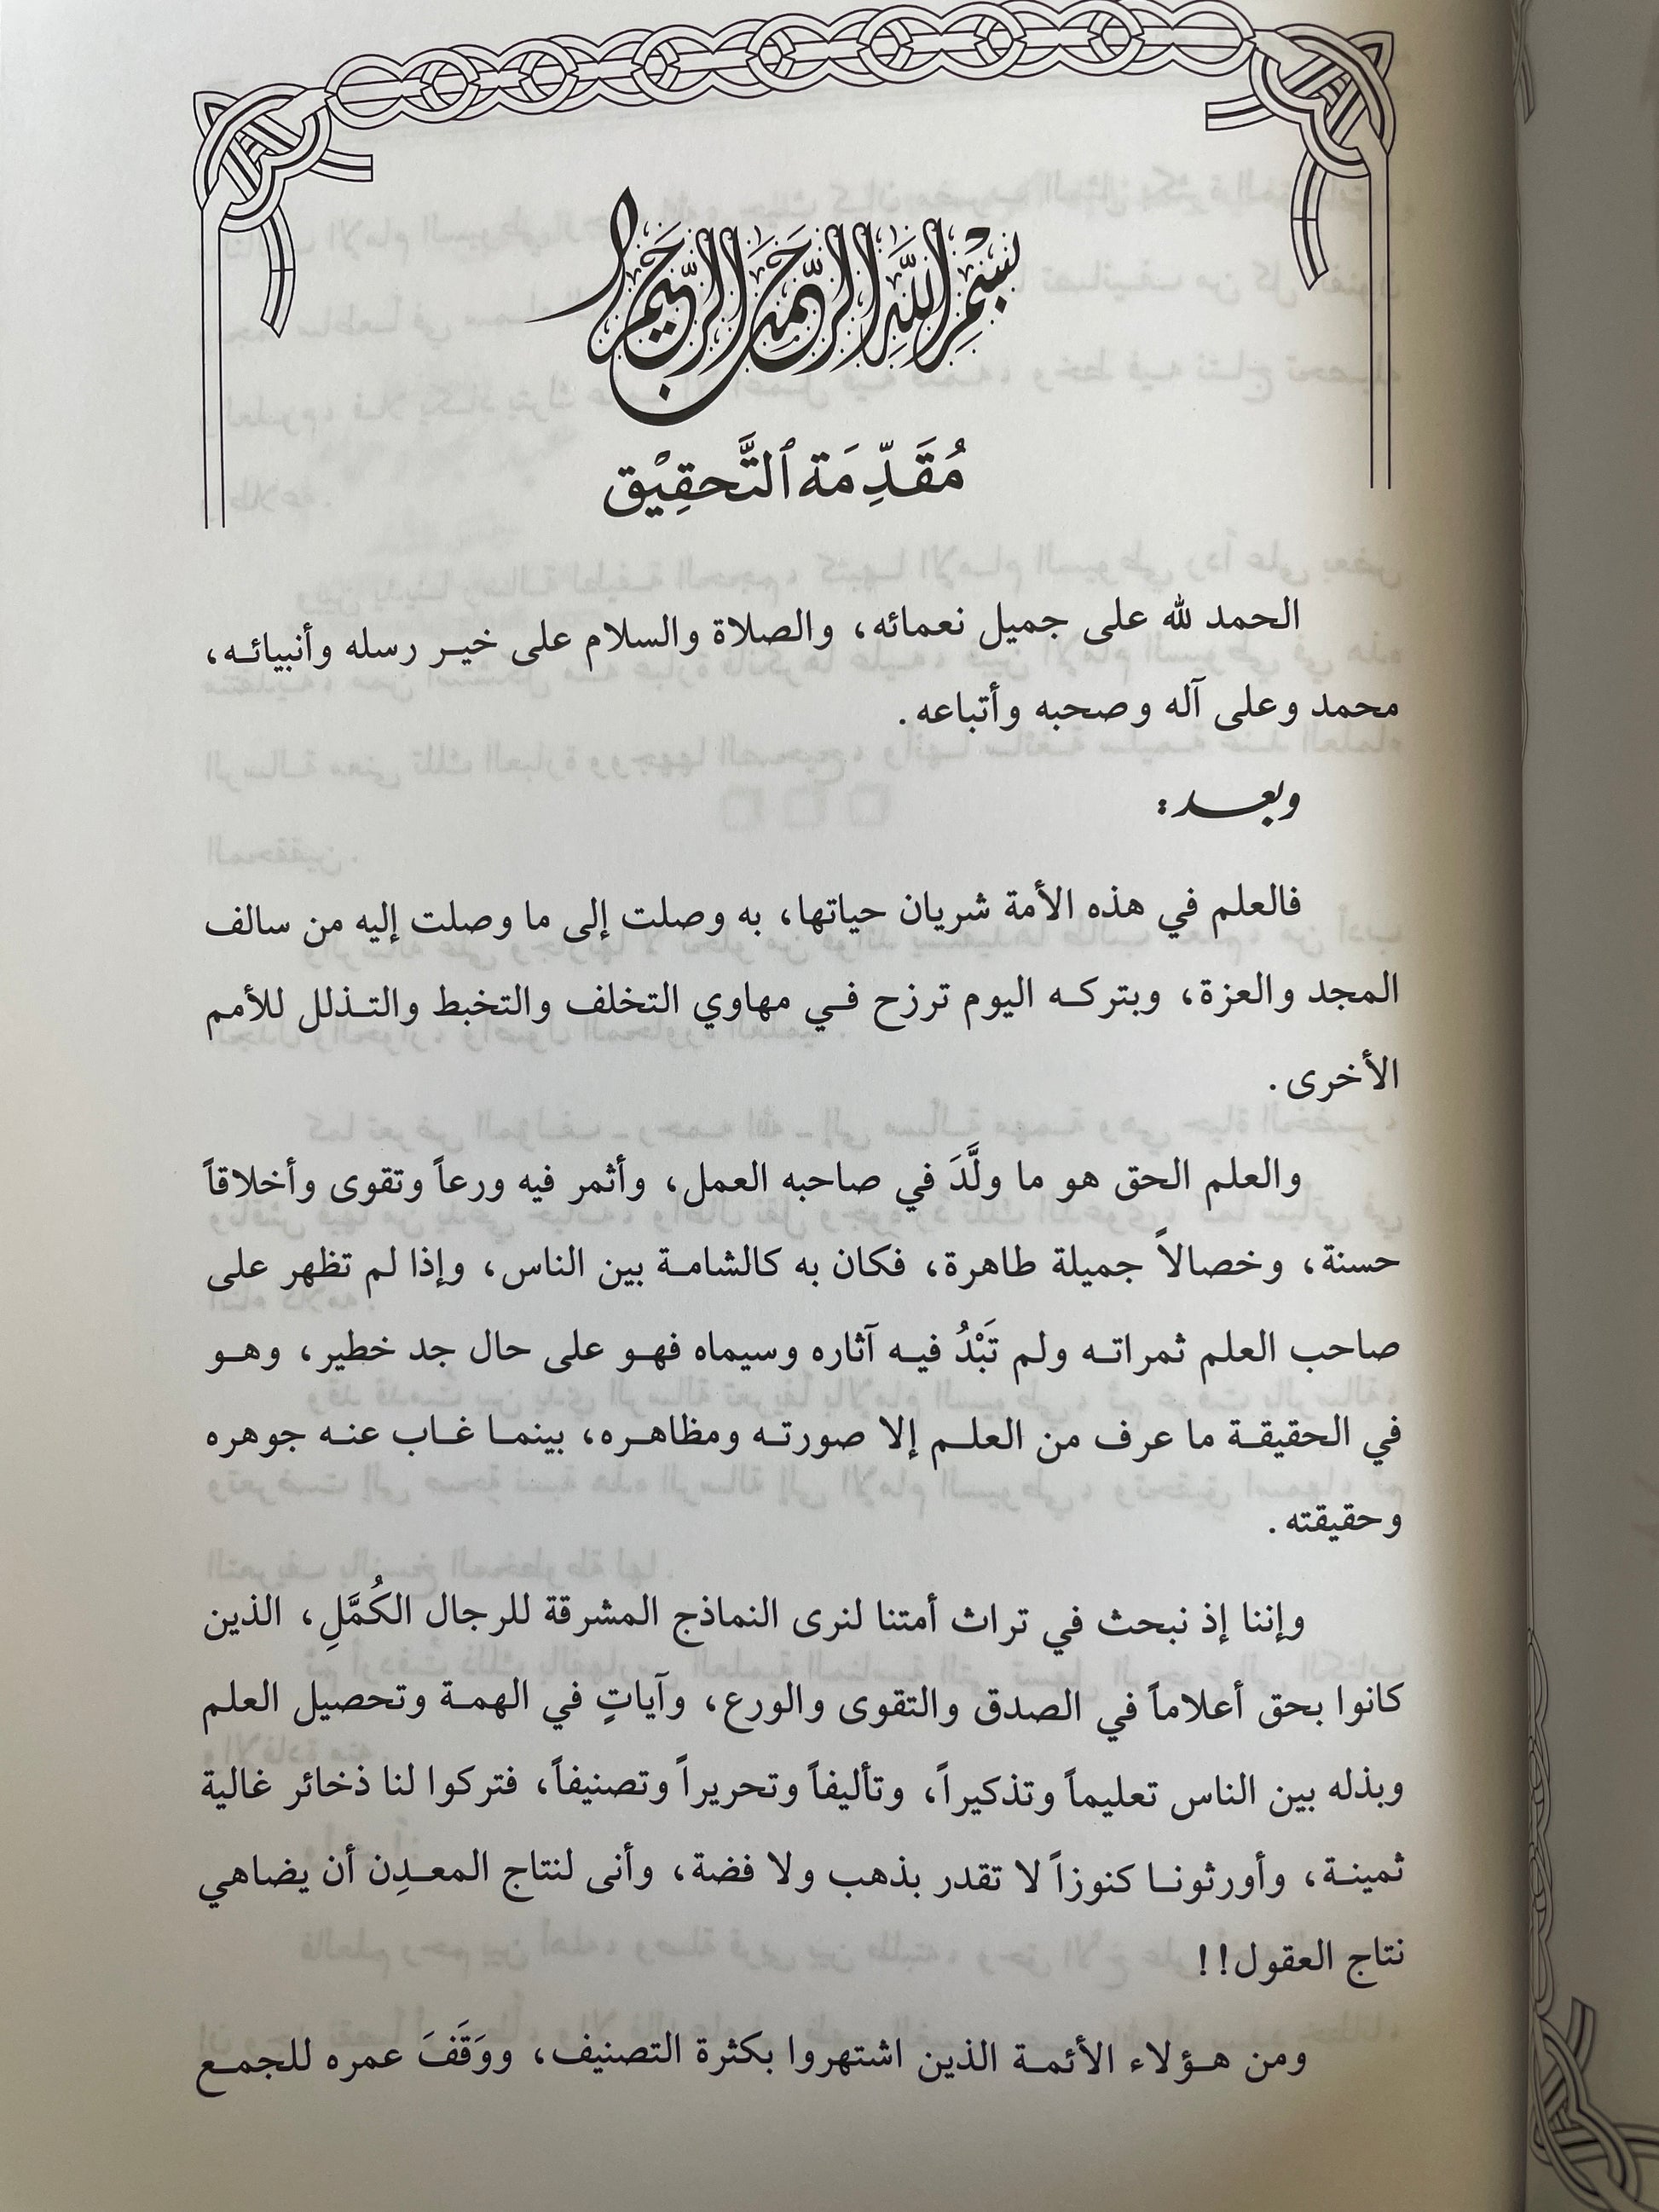 بِسْمِ اللَّهِ الرَّحْمَنِ الرَّحِيمِ
مُقَدِّمَة ٱلتَّحقِيْق
الحمد لله على جميل نعمائه، والصلاة والسلام على خيـر رسله وأنبيائـه،
محمد وعلى آله وصحبه وأتباعه.
وبعـــد:
فالعلم في هذه الأمة شريان حياتها، به وصلت إلى ما وصلت إليه من سالف
المجد والعزة، وبتركـه اليوم ترزح فـي مهاوي التخلف والتخبط والتـذلل للأمم
الأخرى.
والعلم الحق هو ما ولَّدَ في صاحبه العمل، وأثمر فيه ورعاً وتقوى وأخلاقاً
حسنة، وخصالاً جميلة طاهرة، فكان به كالشامـة بين الناس، وإذا لم تظهر على
صاحب العلم ثمراتـه ولم تَبْدُ فيـه آثاره وسيماه فهـو على حال جد خطير، وهـو
في الحقيقـة ما عرف من العلـم إلا صورتـه ومظاهـره، بينمـا غـاب عنـه جوهره
وحقيقته.
وإننا إذ نبحث في تراث أمتنا لنرى النماذج المشرقة للرجال الكُمَّلِ، الذين
كانوا بحق أعلاماً في الصدق والتقوى والورع، وآياتٍ في الهمـة وتحصيل العلم
وبذله بين الناس تعليماً وتذكيراً، وتأليفاً وتحريراً وتصنيفاً، فتركوا لنا ذخائر غالية
ثمينـة، وأورثونـا كنوزاً لا تقدر بذهب ولا فضة، وأنى لنتاج المعـدِن أن يضاهي
نتاج العقول!!
ومن هـؤلاء الأئمـة الذين اشتهروا بكثرة التصنيف، ووَقَفَ عمره للجمـع